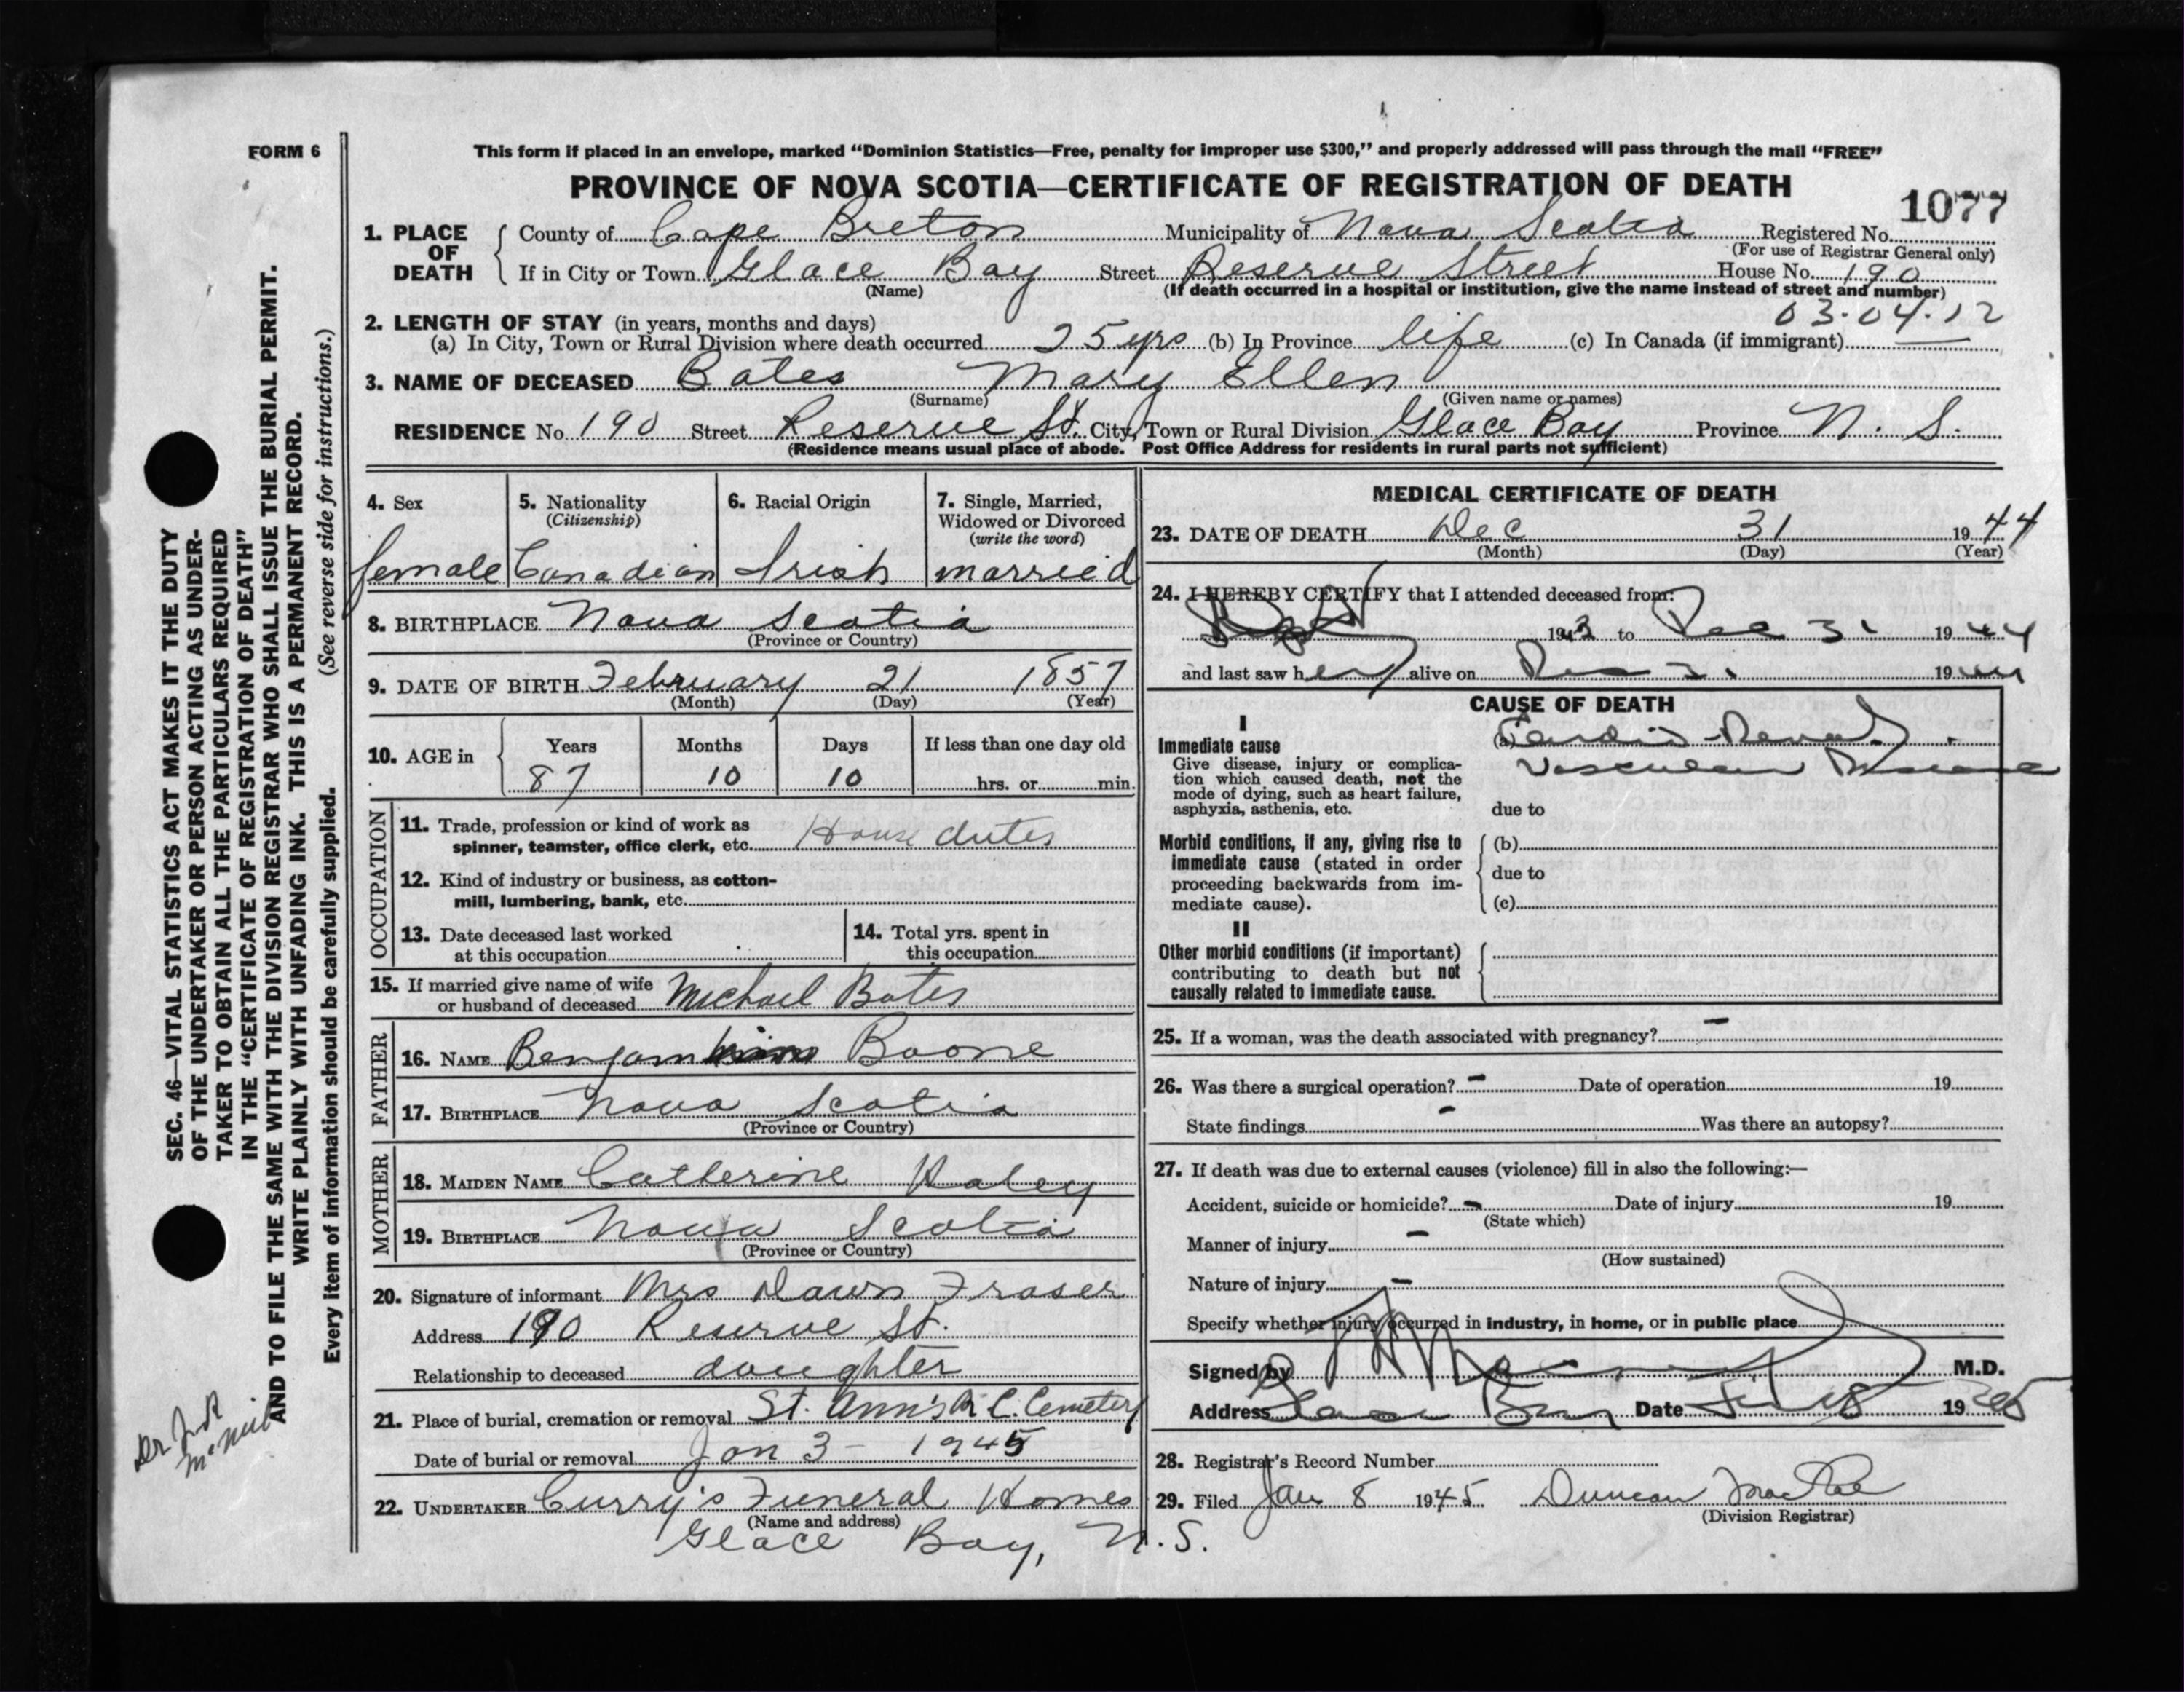 FORM 6
This form if placed in an envelope, marked “Dominion Statistics—Free, penalty for improper use $300,” and properly addressed will pass through the mail “FREE”
PROVINCE OF NOVA SCOTIA—CERTIFICATE OF REGISTRATION OF DEATH
1077
1. PLACE OF DEATH
County of Cape Breton Municipality of Nova Scotia Registered No.
(For use of Registrar General only)
If in City or Town Glace Bay Street Reserve Street House No. 190
(Name) (If death occurred in a hospital or institution, give the name instead of street and number)
03.04.12
2. LENGTH OF STAY (in years, months and days)
(a) In City, Town or Rural Division where death occurred 25 yrs (b) In Province life (c) In Canada (if immigrant) —
3. NAME OF DECEASED Bates Mary Ellen
(Surname) (Given name or names)
RESIDENCE No. 190 Street Reserve St. City, Town or Rural Division Glace Bay Province N. S.
(Residence means usual place of abode. Post Office Address for residents in rural parts not sufficient)
4. Sex
female
5. Nationality
(Citizenship)
Canadian
6. Racial Origin
Irish
7. Single, Married,
Widowed or Divorced
(write the word)
married
8. BIRTHPLACE Nova Scotia
(Province or Country)
9. DATE OF BIRTH February 21 1857
(Month) (Day) (Year)
10. AGE in
Years Months Days If less than one day old
87 10 10 hrs. or min.
OCCUPATION
11. Trade, profession or kind of work as
spinner, teamster, office clerk, etc. House duties
12. Kind of industry or business, as cotton-
mill, lumbering, bank, etc.
13. Date deceased last worked
at this occupation
14. Total yrs. spent in
this occupation
15. If married give name of wife
or husband of deceased Michael Bates
FATHER
16. NAME Benjamin Boone
17. BIRTHPLACE Nova Scotia
(Province or Country)
MOTHER
18. MAIDEN NAME Catherine Haley
19. BIRTHPLACE Nova Scotia
(Province or Country)
20. Signature of informant Mrs Dawn Fraser
Address 190 Reserve St.
Relationship to deceased daughter
21. Place of burial, cremation or removal St. Ann's R. C. Cemetery
Date of burial or removal Jan 3 - 1945
22. UNDERTAKER Curry's Funeral Homes
(Name and address)
Glace Bay, N.S.
MEDICAL CERTIFICATE OF DEATH
23. DATE OF DEATH Dec 31 1944
(Month) (Day) (Year)
24. I HEREBY CERTIFY that I attended deceased from:
1943 to Dec 31 1944
and last saw her alive on Dec 31 1944
CAUSE OF DEATH
I
Immediate cause
Give disease, injury or complica-
tion which caused death, not the
mode of dying, such as heart failure,
asphyxia, asthenia, etc.
(a) Cardio Renal
Vascular Disease
due to
Morbid conditions, if any, giving rise to
immediate cause (stated in order
proceeding backwards from im-
mediate cause).
(b)
due to
(c)
II
Other morbid conditions (if important)
contributing to death but not
causally related to immediate cause.
25. If a woman, was the death associated with pregnancy? —
26. Was there a surgical operation? — Date of operation 19
State findings — Was there an autopsy?
27. If death was due to external causes (violence) fill in also the following:—
Accident, suicide or homicide? — Date of injury 19
(State which)
Manner of injury —
(How sustained)
Nature of injury —
Specify whether injury occurred in industry, in home, or in public place
Signed by M.D.
Address Glace Bay Date 19
28. Registrar's Record Number
29. Filed Jan 8 1945 Duncan MacRae
(Division Registrar)
SEC. 46—VITAL STATISTICS ACT MAKES IT THE DUTY
OF THE UNDERTAKER OR PERSON ACTING AS UNDER-
TAKER TO OBTAIN ALL THE PARTICULARS REQUIRED
IN THE “CERTIFICATE OF REGISTRATION OF DEATH”
AND TO FILE THE SAME WITH THE DIVISION REGISTRAR WHO SHALL ISSUE THE BURIAL PERMIT.
WRITE PLAINLY WITH UNFADING INK. THIS IS A PERMANENT RECORD.
Every item of information should be carefully supplied. (See reverse side for instructions.)
Dr
McNeil